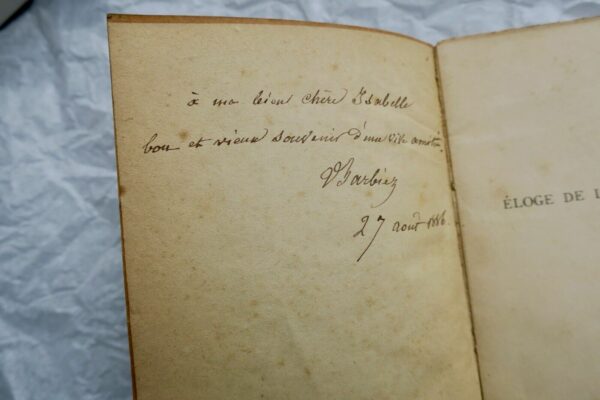 à ma bien chère Isabelle
bon et vieux souvenir d'une
Barbiez
27 août 1886.
ÉLOGE DE L